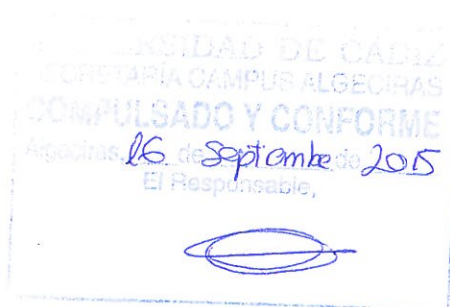 UNIVERSIDAD DE CADIZ
SECRETARÍA CAMPUS ALGECIRAS
COMPULSADO Y CONFORME
Algeciras, 16 de Septiembre de 2015
El Responsable,